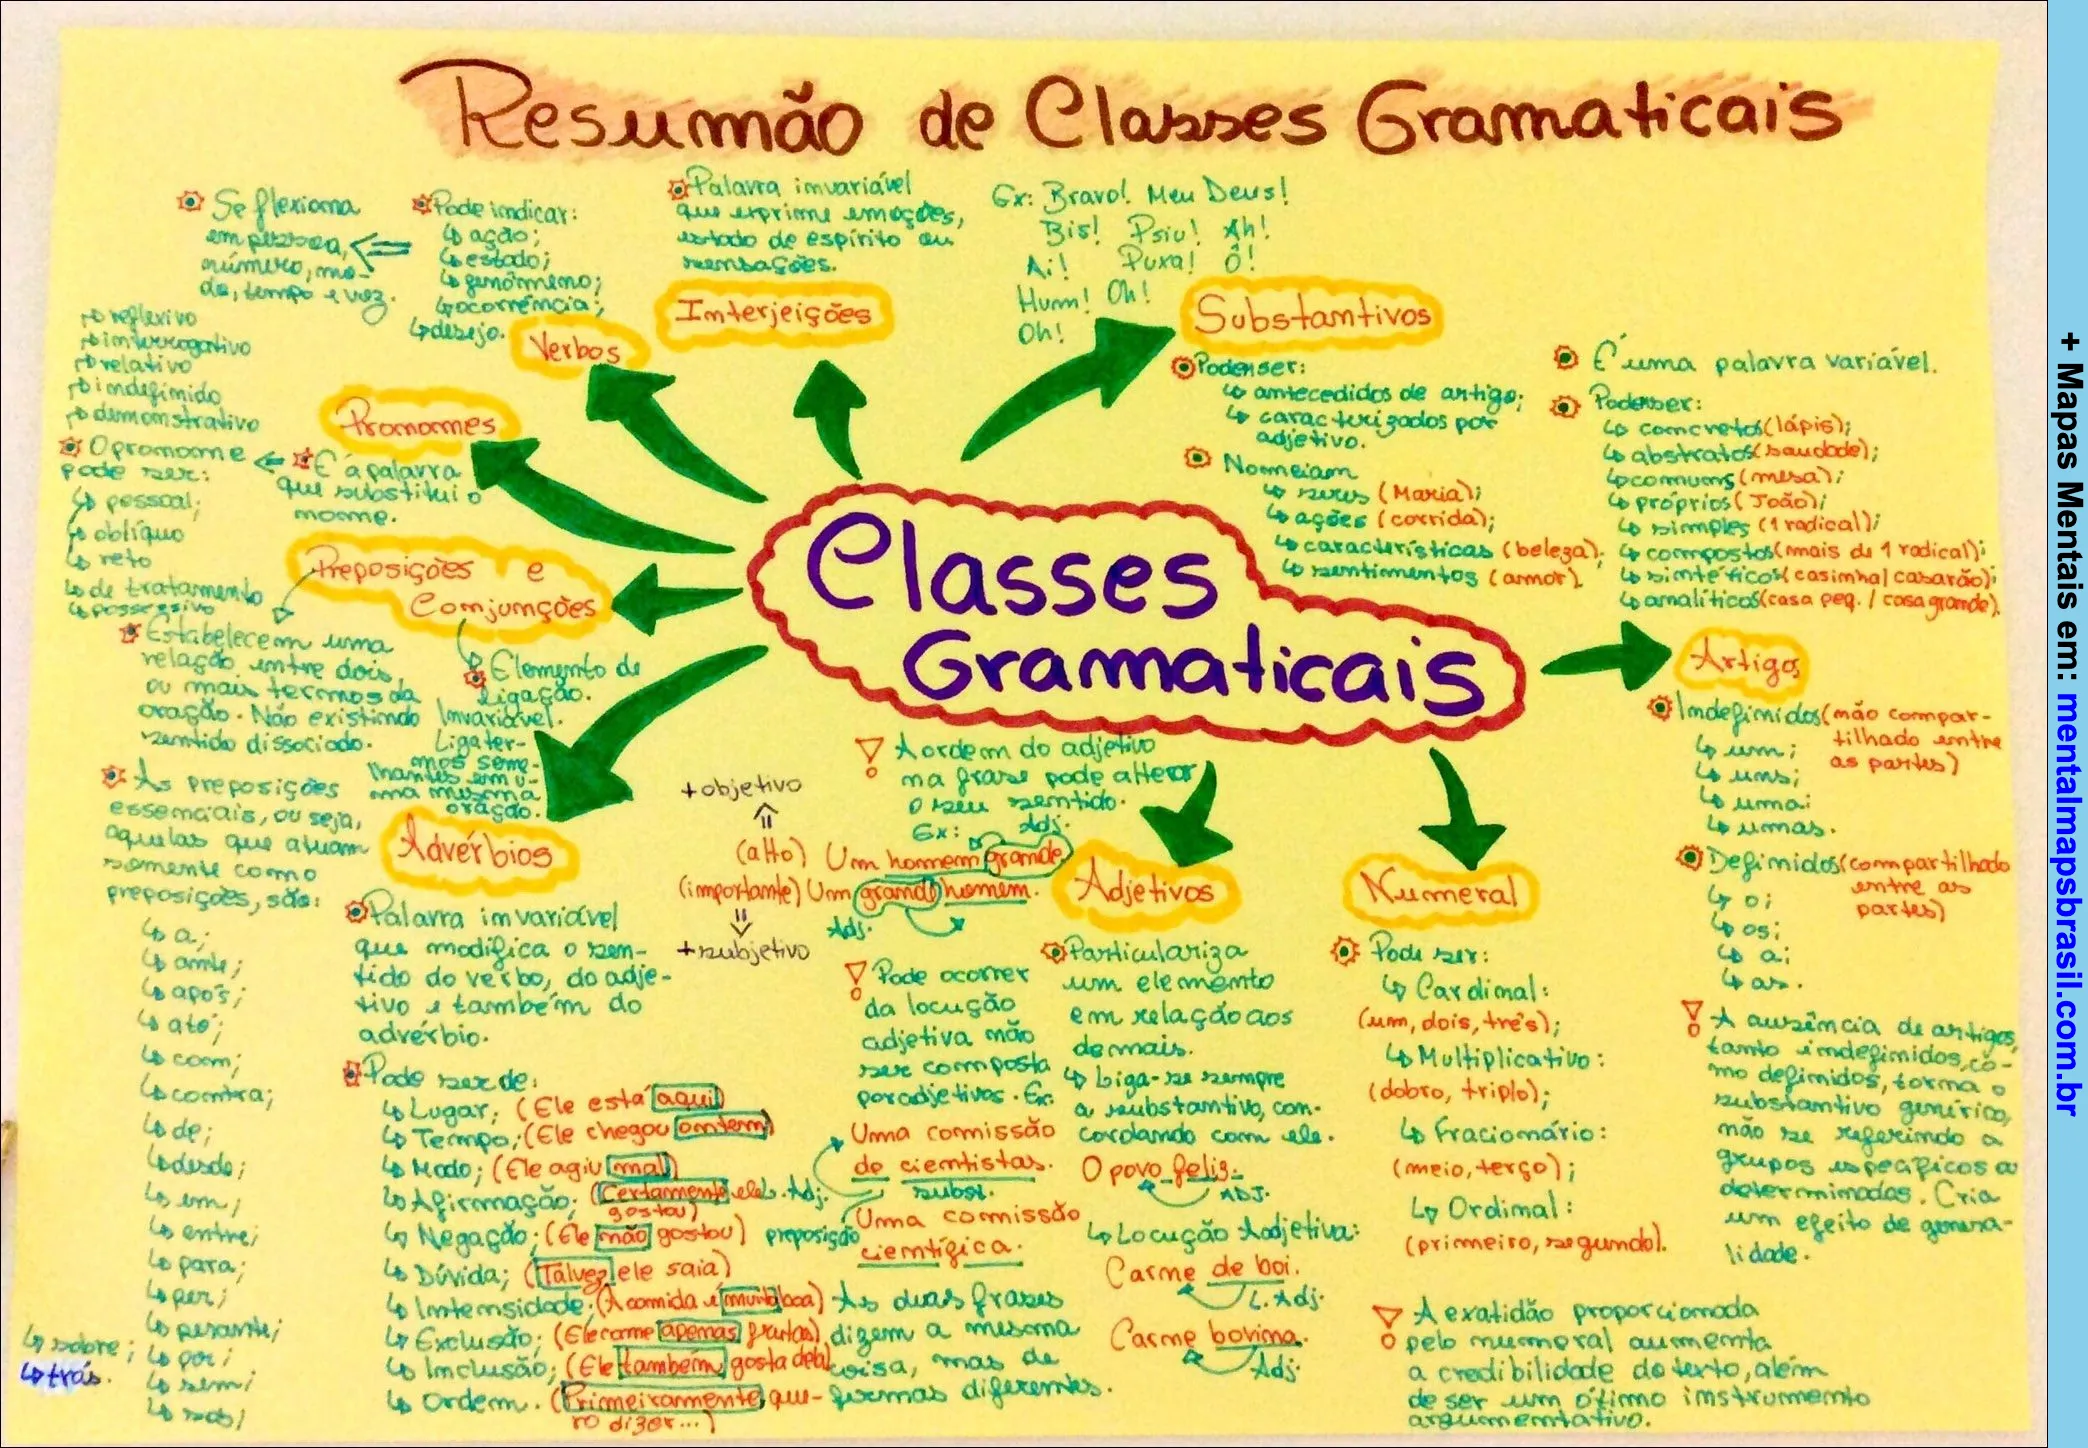 Resumão de Classes Gramaticais
Se flexiona
em pessoa,
número, mo-
do, tempo e voz.
Pode indicar:
ação;
estado;
fenômeno;
ocorrência;
desejo.
Verbos
Palavra invariável
que exprime emoções,
estado de espírito ou
sensações.
Ex: Bravo! Meu Deus!
Bis! Psiu! Ah!
Ai! Puxa! Ô!
Hum! Oh!
Oh!
Interjeições
Substantivos
Podem ser:
antecedidos de artigo;
caracterizados por
adjetivo.
Nomeiam
seres (Maria);
ações (corrida);
características (beleza);
sentimentos (amor).
É uma palavra variável.
Podem ser:
concretos (lápis);
abstratos (saudade);
comuns (mesa);
próprios (João);
simples (1 radical);
compostos (mais de 1 radical);
sintéticos (casinha/ casarão);
analíticos (casa peq. / casa grande).
reflexivo
interrogativo
relativo
indefinido
demonstrativo
Pronomes
O pronome
pode ser:
pessoal;
oblíquo
reto
de tratamento
possessivo
É a palavra
que substitui o
nome.
Classes
Gramaticais
Preposições e
Conjunções
Estabelecem uma
relação entre dois,
ou mais termos da
oração. Não existindo
sentido dissociado.
Elemento de
ligação.
Invariável.
Liga ter-
mos seme-
lhantes em u-
ma mesma
oração.
As preposições
essenciais, ou seja,
aquelas que atuam
somente como
preposições, são:
a;
ante;
após;
até;
com;
contra;
de;
desde;
em;
entre;
para;
per;
perante;
por;
sem;
sob;
sobre;
trás.
Advérbios
Palavra invariável
que modifica o sen-
tido do verbo, do adje-
tivo e também do
advérbio.
Pode ser de:
Lugar; (Ele está aqui)
Tempo; (Ele chegou ontem)
Modo; (Ele agiu mal)
Afirmação; (Certamente ele
gostou)
Negação; (Ele não gostou)
Dúvida; (Talvez ele saia)
Intensidade; (A comida é muito boa)
Exclusão; (Ele come apenas frutas)
Inclusão; (Ele também gosta dela)
Ordem. (Primeiramente que-
ro dizer...)
A ordem do adjetivo
na frase pode alterar
o seu sentido.
Ex: Adj.
+objetivo
(alto) Um homem grande
(importante) Um grande homem.
Adj.
+subjetivo
Pode ocorrer
da locução
adjetiva não
ser composta
por adjetivos. Ex:
Uma comissão
de cientistas.
L. Adj. subst.
preposição
Uma comissão
científica.
As duas frases
dizem a mesma
coisa, mas de
formas diferentes.
Adjetivos
Particulariza
um elemento
em relação aos
demais.
Liga-se sempre
a substantivo, con-
cordando com ele.
O povo feliz.
ADJ.
Locução Adjetiva:
Carne de boi.
L. Adj.
Carne bovina.
Adj.
Numeral
Pode ser:
Cardinal:
(um, dois, três);
Multiplicativo:
(dobro, triplo);
Fracionário:
(meio, terço);
Ordinal:
(primeiro, segundo).
A exatidão proporcionada
pelo numeral aumenta
a credibilidade do texto, além
de ser um ótimo instrumento
argumentativo.
Artigo
Indefinidos (não compar-
tilhado entre
as partes)
um;
uns;
uma;
umas.
Definidos (compartilhado
entre as
partes)
o;
os;
a;
as.
A ausência de artigos,
tanto indefinidos, co-
mo definidos, torna o
substantivo genérico,
não se referindo a
grupos específicos ou
determinados. Cria
um efeito de genera-
lidade.
+ Mapas Mentais em: mentalmapsbrasil.com.br